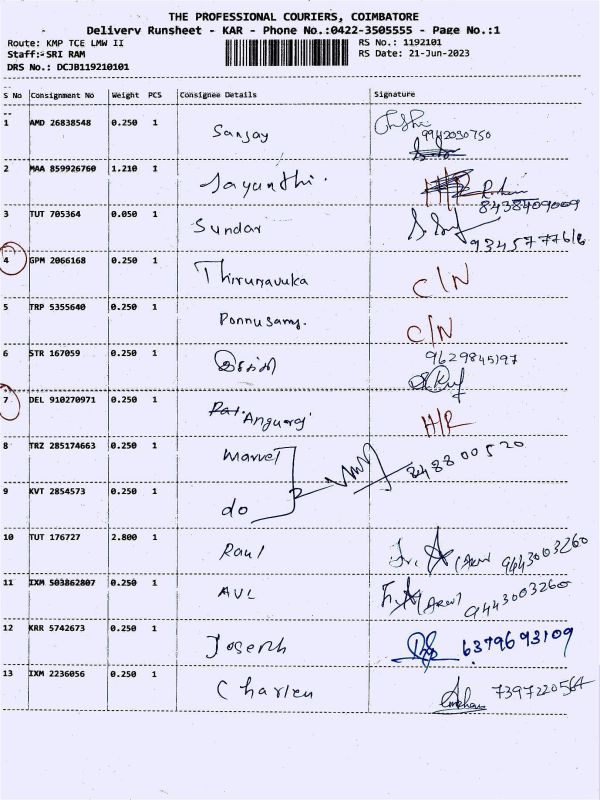 THE PROFESSIONAL COURIERS, COIMBATORE
Delivery Runsheet - KAR - Phone No.:0422-3505555 - Page No.:1
Route: KMP TCE LMW II RS No.: 1192101
Staff:-SRI RAM RS Date: 21-Jun-2023
DRS No.: DCJB119210101
S No Consignment No Weight PCS Consignee Details Signature
1 AMD 26838548 0.250 1 Sanjay 9942030750
2 MAA 859926760 1.210 1 Jayanthi. H/R 8438409009
3 TUT 705364 0.050 1 Sundar
4 GPM 2066168 0.250 1 Thirunavuka C/N
5 TRP 5355640 0.250 1 Ponnusamy. C/N
6 STR 167059 0.250 1 9629845197
7 DEL 910270971 0.250 1 Anguraj H/R
8 TRZ 285174663 0.250 1 Marvel 848800520
9 KVT 2854573 0.250 1 do
10 TUT 176727 2.800 1 Raul 9443003260
11 IXM 503862807 0.250 1 AVL 9443003260
12 KRR 5742673 0.250 1 Joseph 6379693109
13 IXM 2236056 0.250 1 Charlen 7397220564